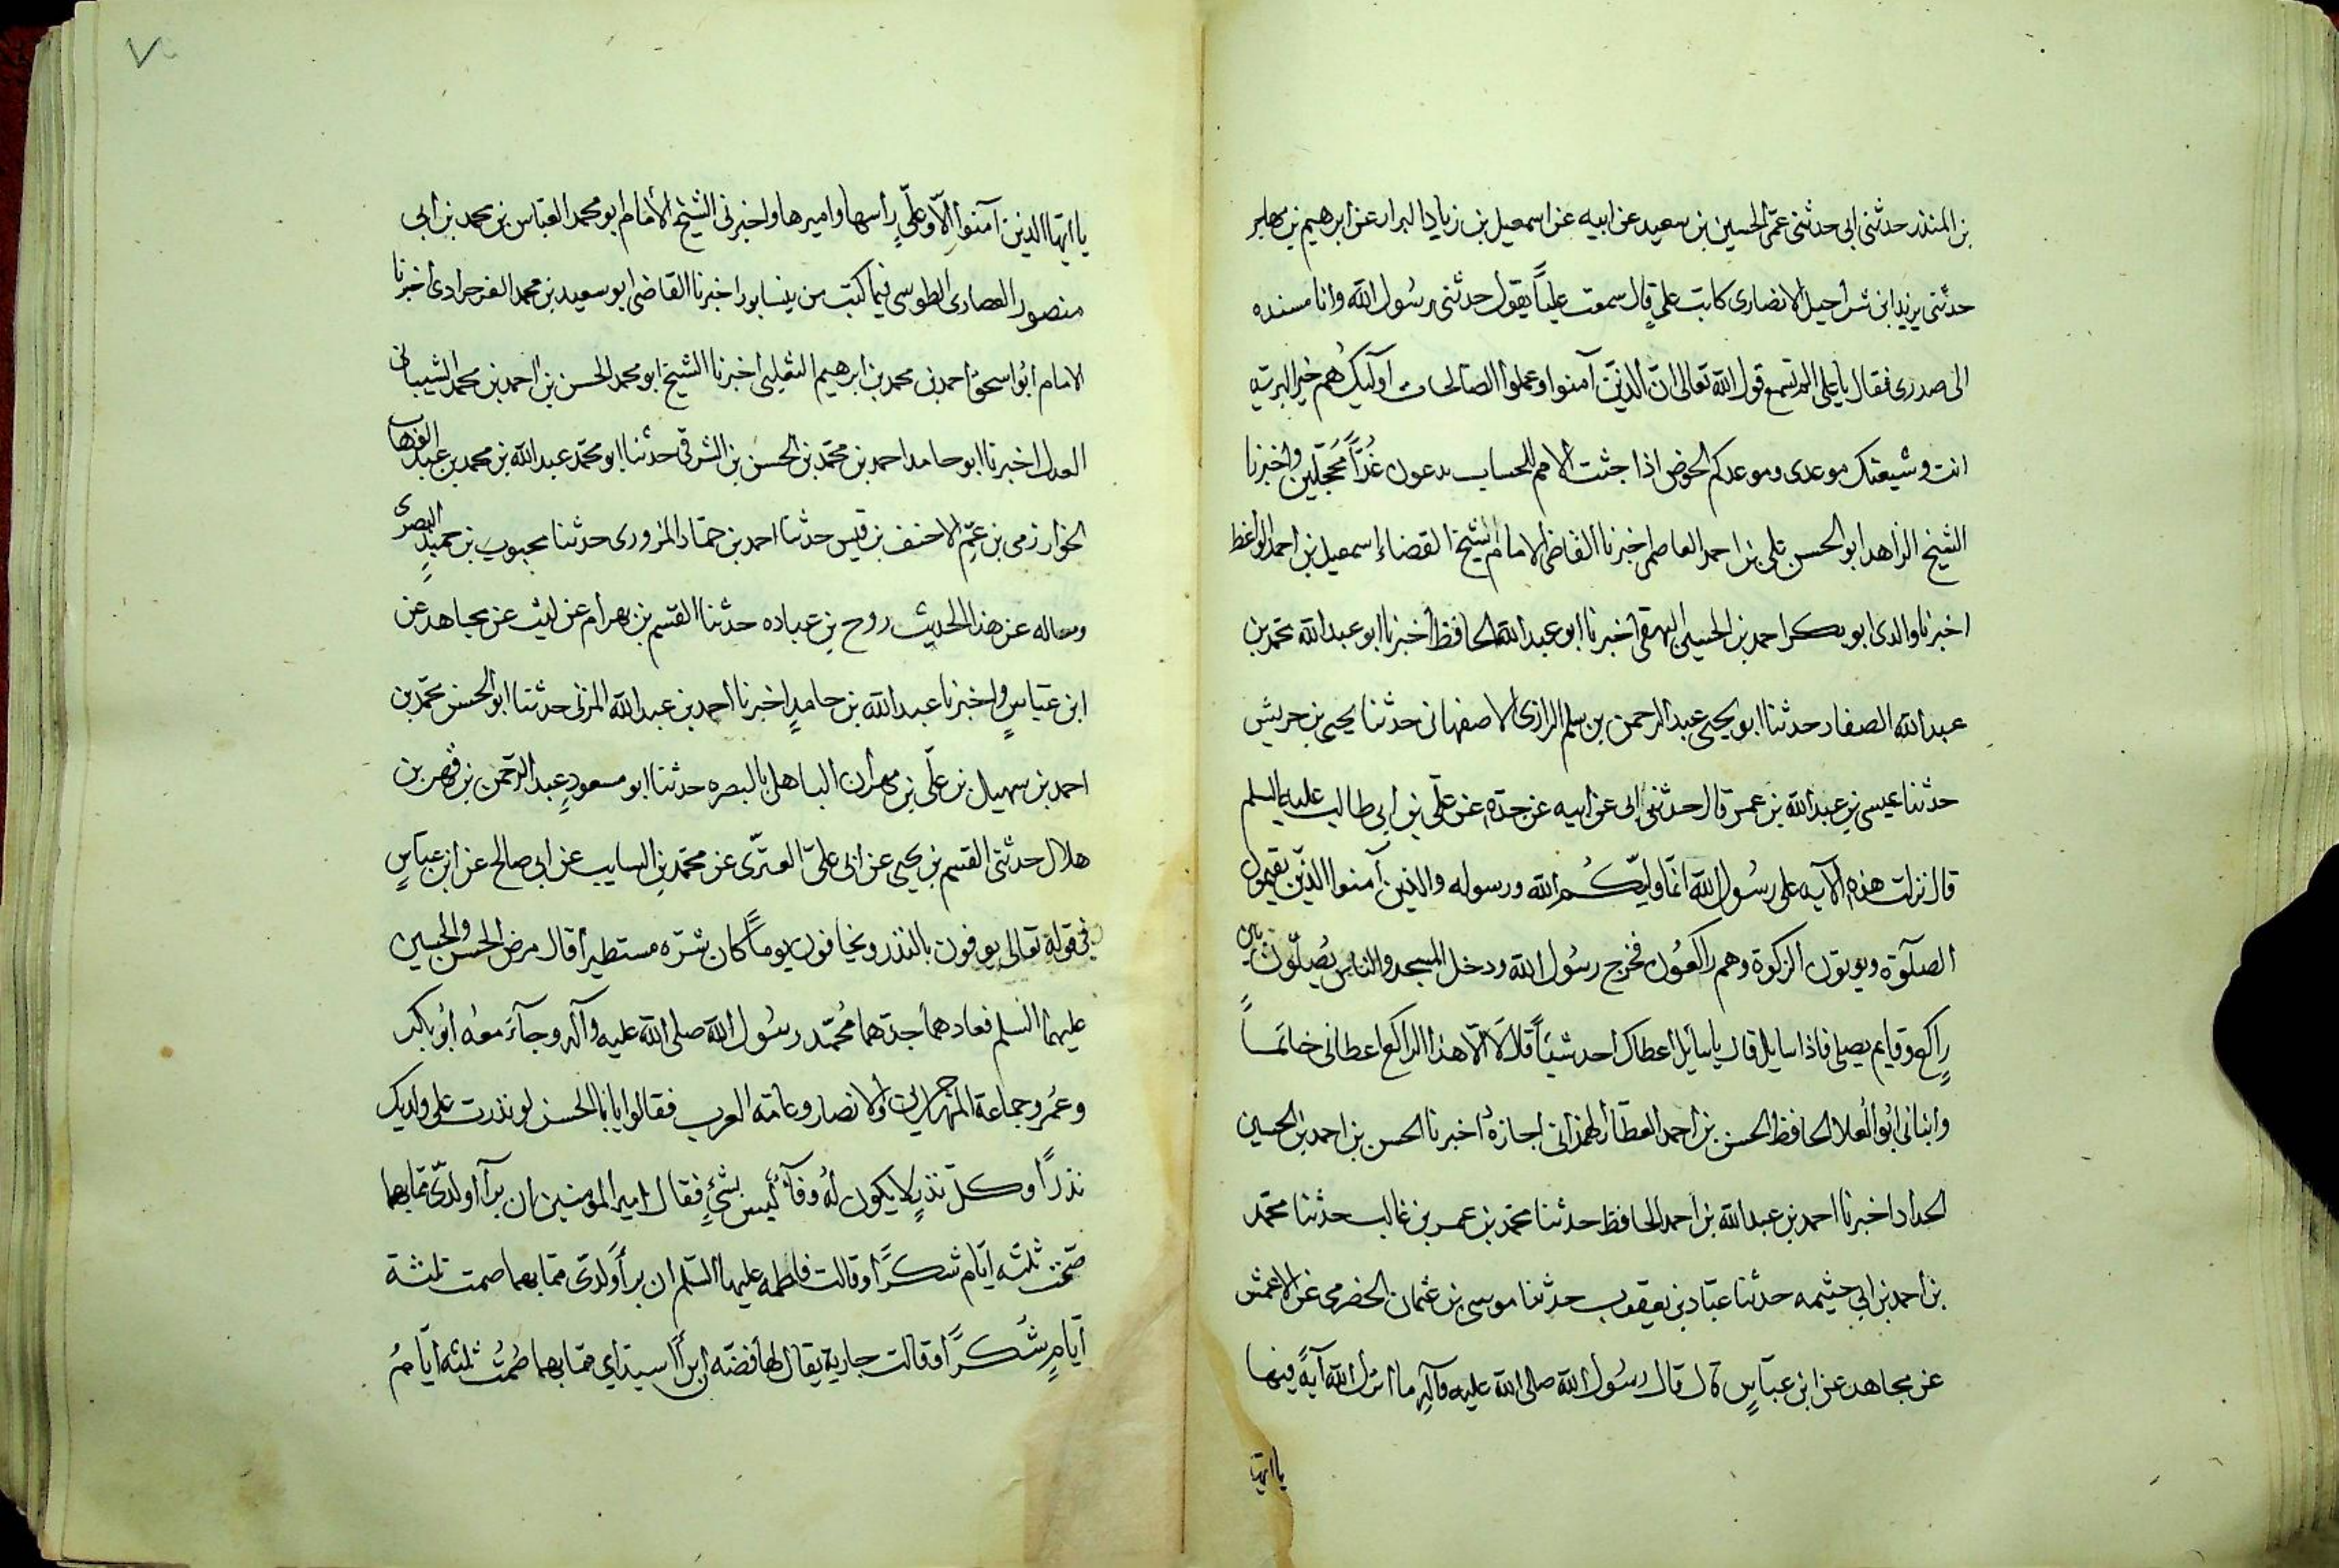 بن المنذر حدثنى ابى حدثنى عمّى الحسين بن سعيد عن ابيه عن اسمعيل بن زياد البزار عن ابرهيم بن مهاجر
حدّثنى يزيد ابن شراحيل الانصارى كاتب علىٍ قال سمعت علياً يقول حدثنى رسُول الله وانا مسنده
الى صدرى فقال ياعلى الم تسمع قول الله تعالى انّ الذينَ آمنوا وعملوا الصالحات اوليك هُم خير البريّه
انت وشيعتك موعدى وموعدكم الحوض اذا جثت الامم للحساب يدعون غُرّاً مُحجّلين واخبرنا
الشيخ الزاهد ابو الحسن على بن احمد العاصمى اخبرنا القاضى الامام شيخ القضاه اسمعيل بن احمد الواعظ
اخبرنا والدى ابو بكر احمد بن الحسين البيهقى اخبرنا ابو عبدالله الحافظ اخبرنا ابو عبدالله محمّد بن
عبدالله الصفار حدثنا ابو يحيى عبدالرحمن بن سلم الرازى الاصفهانى حدثنا يحيى بن حريش
حدثنا عيسى بن عبدالله بن عمر قال حدثنى ابى عن ابيه عن جدّه عن علىّ بن ابى طالب عليه السلم
قال نزلت هذه الآيه على رسُول الله انّما وليّكُم الله ورسوله والذين آمنوا الذين يقيمون
الصلوٰة ويوتون الزكوة وهم راكعُون فخرج رسُول الله ودخل المسجد والناس يُصلّون بين
راكع وقايم يصلى فاذا سايل قال ياسايل اعطاك احد شيئاً قال لا الّا هذا الراكع اعطانى خاتماً
وانبانى ابُو العُلا الحافظ الحسن بن احمد العطّار الهمذانى اجازةً اخبرنا الحسن بن احمد بن الحسين
الحداد اخبرنا احمد بن عبدالله بن احمد الحافظ حدثنا محمّد بن عمر بن غالب حدثنا محمّد
بن احمد بن ابى خثيمه حدثنا عبّاد بن يعقوب حدثنا موسى بن عثمان الحضرمى عن الاعمش
عن مجاهد عن ابن عبّاسٍ قال قال رسُول الله صلى الله عليه وآله ما انزل الله آيةً فيها
يا ايّها
يا ايّها الذين آمنوا الّا وعلىّ راسها واميرها واخبرنى الشيخ الامام ابو محمد العبّاس بن محمد بن ابى
منصور العصارى الطوسى فيما كتب من نيسابور اخبرنا القاضى ابو سعيد بن محمد الفرخرادى اخبرنا
الامام ابُو اسحق احمد بن محمد بن ابرهيم الثعلبى اخبرنا الشيخ ابو محمد الحسن بن احمد بن محمد الشيبانى
العدل اخبرنا ابو حامد احمد بن محمّد بن الحسن بن الشرقى حدثنا ابو محمّد عبدالله بن محمد بن عبد الوهاب
الخوارزمى بن عمّ الاحنف بن قيس حدثنا احمد بن حمّاد المزورى حدثنا محبوب بن حميدٍ البصرى
وساله عن هذا الحديث روح بن عباده حدثنا القسم بن بهرام عن ليث عن مجاهد عن
ابن عبّاسٍ واخبرنا عبدالله بن حامدٍ اخبرنا احمد بن عبدالله المزنى حدثنا ابو الحسن محمّد بن
احمد بن سهيل بن علّى بن مهران الباهلى بالبصره حدثنا ابو مسعودٍ عبد الرّحمن بن فهر بن
هلال حدثنى القسم بن يحيى عن ابى علىّ العترّى عن محمّد بن السايب عن ابى صالح عن ابن عبّاسٍ
فى قوله تعالى يوفون بالنذر ويخافون يوماً كان شرّه مستطيراً قال مرض الحسن والحسين
عليهما السلم فعادهما جدّهما مُحمّد رسُول الله صلى الله عليه وآله وجآءَ معهُ ابُو بكر
وعُمر وجماعة المهاجرين والانصار وعامّه العرب فقالوا يابا الحسن لو نذرت على ولديك
نذراً وكلّ نذرٍ لا يكون لهُ وفآءٌ ليس بشئٍ فقال امير المومنين ان برآ اولدىّ ممّا بهما
صمت ثلثه ايّام شكراً وقالت فاطمه عليها السّلم ان برأ ولدىّ ممّا بهما صمت ثلثة
ايّامٍ شُكراً وقالت جارية يقال لها فضّه ان برأ اسيّداى ممّا بهما صُمتُ ثلثه ايّامُ